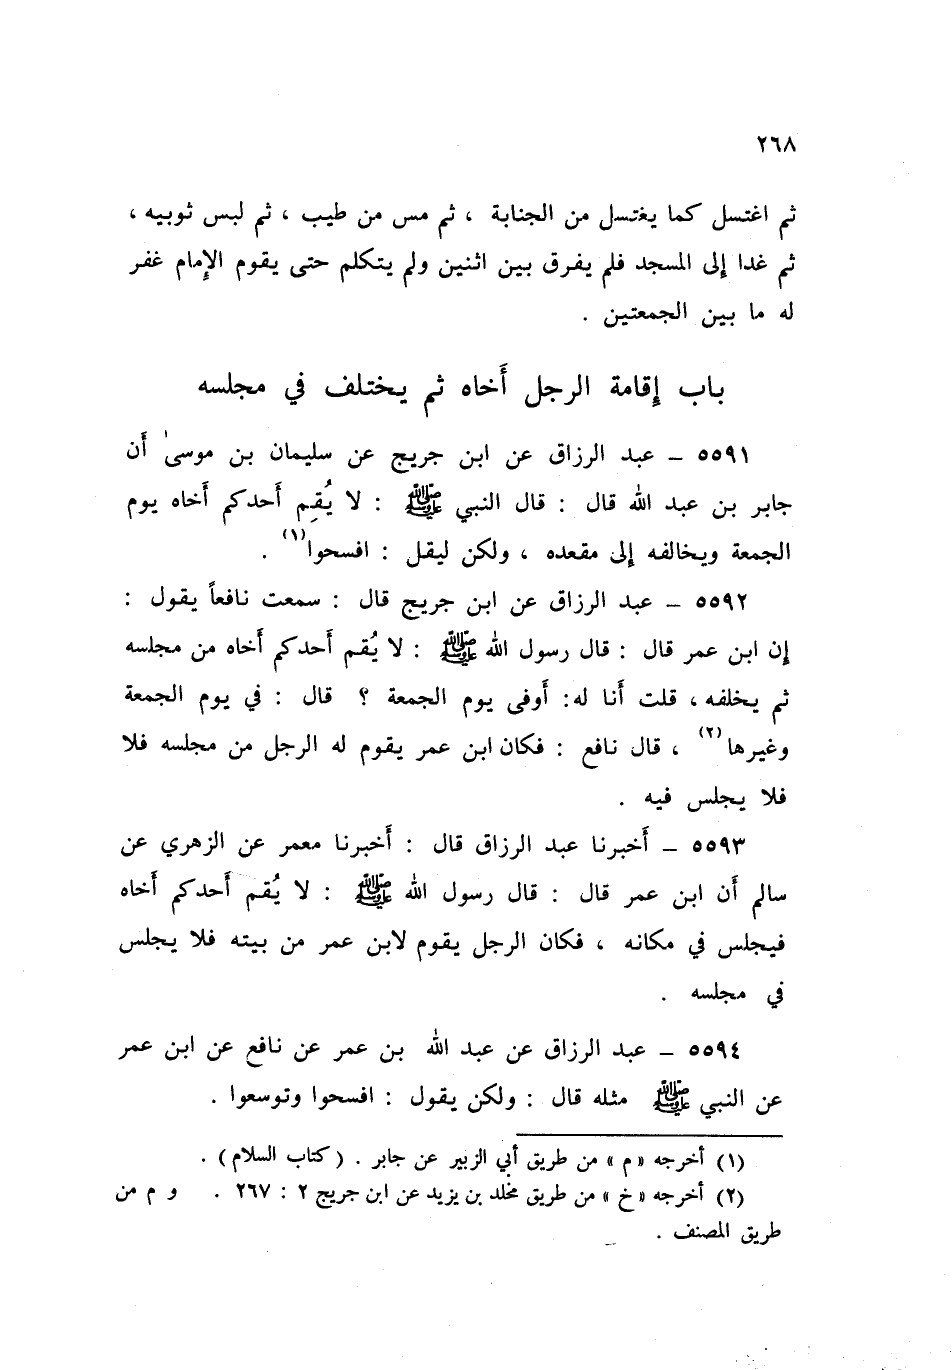 ٢٦٨
ثم اغتسل كما يغتسل من الجنابة ، ثم مس من طيب ، ثم لبس ثوبيه ،
ثم غدا إلى المسجد فلم يفرق بين اثنين ولم يتكلم حتى يقوم الإمام غفر
له ما بين الجمعتين .
باب إقامة الرجل أَخاه ثم يختلف في مجلسه
٥٥٩١ – عبد الرزاق عن ابن جريج عن سليمان بن موسىٰ أَن
جابر بن عبد الله قال : قال النبي ﷺ : لا يُقِم أَحدكم أَخاه يوم
الجمعة ويخالفه إلى مقعده ، ولكن ليقل : افسحوا(١) .
٥٥٩٢ – عبد الرزاق عن ابن جريج قال : سمعت نافعاً يقول :
إن ابن عمر قال : قال رسول الله ﷺ : لا يُقم أَحدكم أَخاه من مجلسه
ثم يخلفه ، قلت أَنا له: أَوفى يوم الجمعة ؟ قال : في يوم الجمعة
وغيرها(٢) ، قال نافع : فكان ابن عمر يقوم له الرجل من مجلسه فلا
فلا يجلس فيه .
٥٥٩٣ – أَخبرنا عبد الرزاق قال : أَخبرنا معمر عن الزهري عن
سالم أَن ابن عمر قال : قال رسول الله ﷺ : لا يُقم أَحدكم أَخاه
فيجلس في مكانه ، فكان الرجل يقوم لابن عمر من بيته فلا يجلس
في مجلسه .
٥٥٩٤ – عبد الرزاق عن عبد الله بن عمر عن نافع عن ابن عمر
عن النبي ﷺ مثله قال : ولكن يقول : افسحوا وتوسعوا .
(١) أخرجه «م» من طريق أبي الزبير عن جابر . (كتاب السلام) .
(٢) أخرجه «خ» من طريق مخلد بن يزيد عن ابن جريج ٢ : ٢٦٧ . و م من
طريق المصنف .